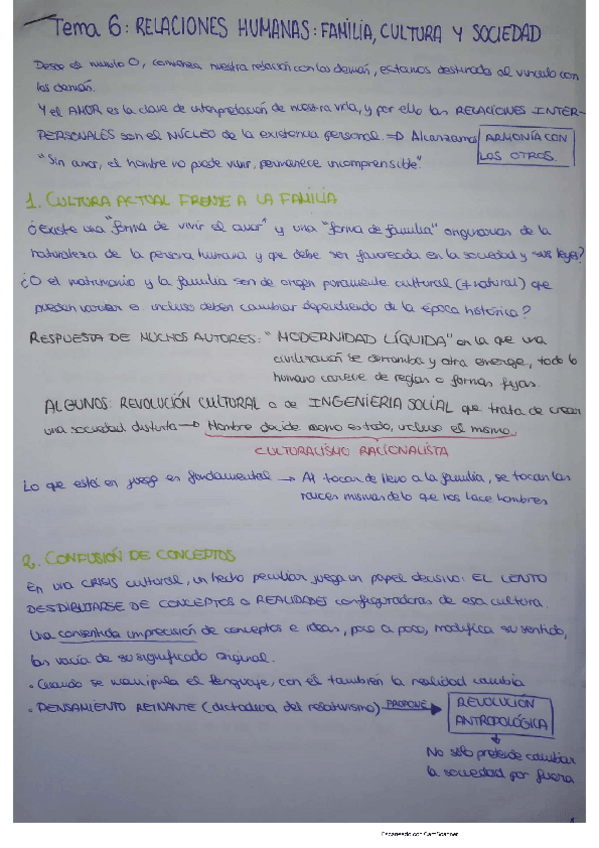 Tema 6: RELACIONES HUMANAS: FAMILIA, CULTURA Y SOCIEDAD
Desde el minuto 0, comienza nuestra relación con los demás, estamos destinados al vínculo con
los demás.
Y el AMOR es la clave de interpretación de nuestra vida, y por ello las RELACIONES INTER-
PERSONALES son el NÚCLEO de la existencia personal. => Alcanzamos ARMONÍA CON
LOS OTROS.
"Sin amor, el hombre no puede vivir, permanece incomprensible".
1. CULTURA ACTUAL FRENTE A LA FAMILIA
¿Existe una "forma de vivir el amor" y una "forma de familia" originarias de la
naturaleza de la persona humana y que debe ser favorecida en la sociedad y sus leyes?
¿O el matrimonio y la familia son de origen puramente cultural (≠ natural) que
pueden variar e incluso deben cambiar dependiendo de la época histórica?
RESPUESTA DE MUCHOS AUTORES: "MODERNIDAD LÍQUIDA" en la que una
civilización se derrumba y otra emerge, todo lo
humano carece de reglas o formas fijas.
ALGUNOS: REVOLUCIÓN CULTURAL o de INGENIERIA SOCIAL que trata de crear
una sociedad distinta → Hombre decide como es todo, incluso él mismo.
CULTURALISMO RACIONALISTA
Lo que está en juego es fundamental → Al tocar de lleno a la familia, se tocan las
raíces mismas de lo que nos hace hombres
2. CONFUSIÓN DE CONCEPTOS
En una CRISIS cultural, un hecho peculiar juega un papel decisivo: EL LENTO
DESDIBUJARSE DE CONCEPTOS o REALIDADES configuradoras de esa cultura.
Una consentida imprecisión de conceptos e ideas, poco a poco, modifica su sentido,
las varía de su significado original.
· Cuando se manipula el lenguaje, con él también la realidad cambia
· PENSAMIENTO REINANTE (dictadura del relativismo) PROPONE → REVOLUCIÓN
ANTROPOLÓGICA
No sólo pretende cambiar
la sociedad por fuera
Escaneado con CamScanner